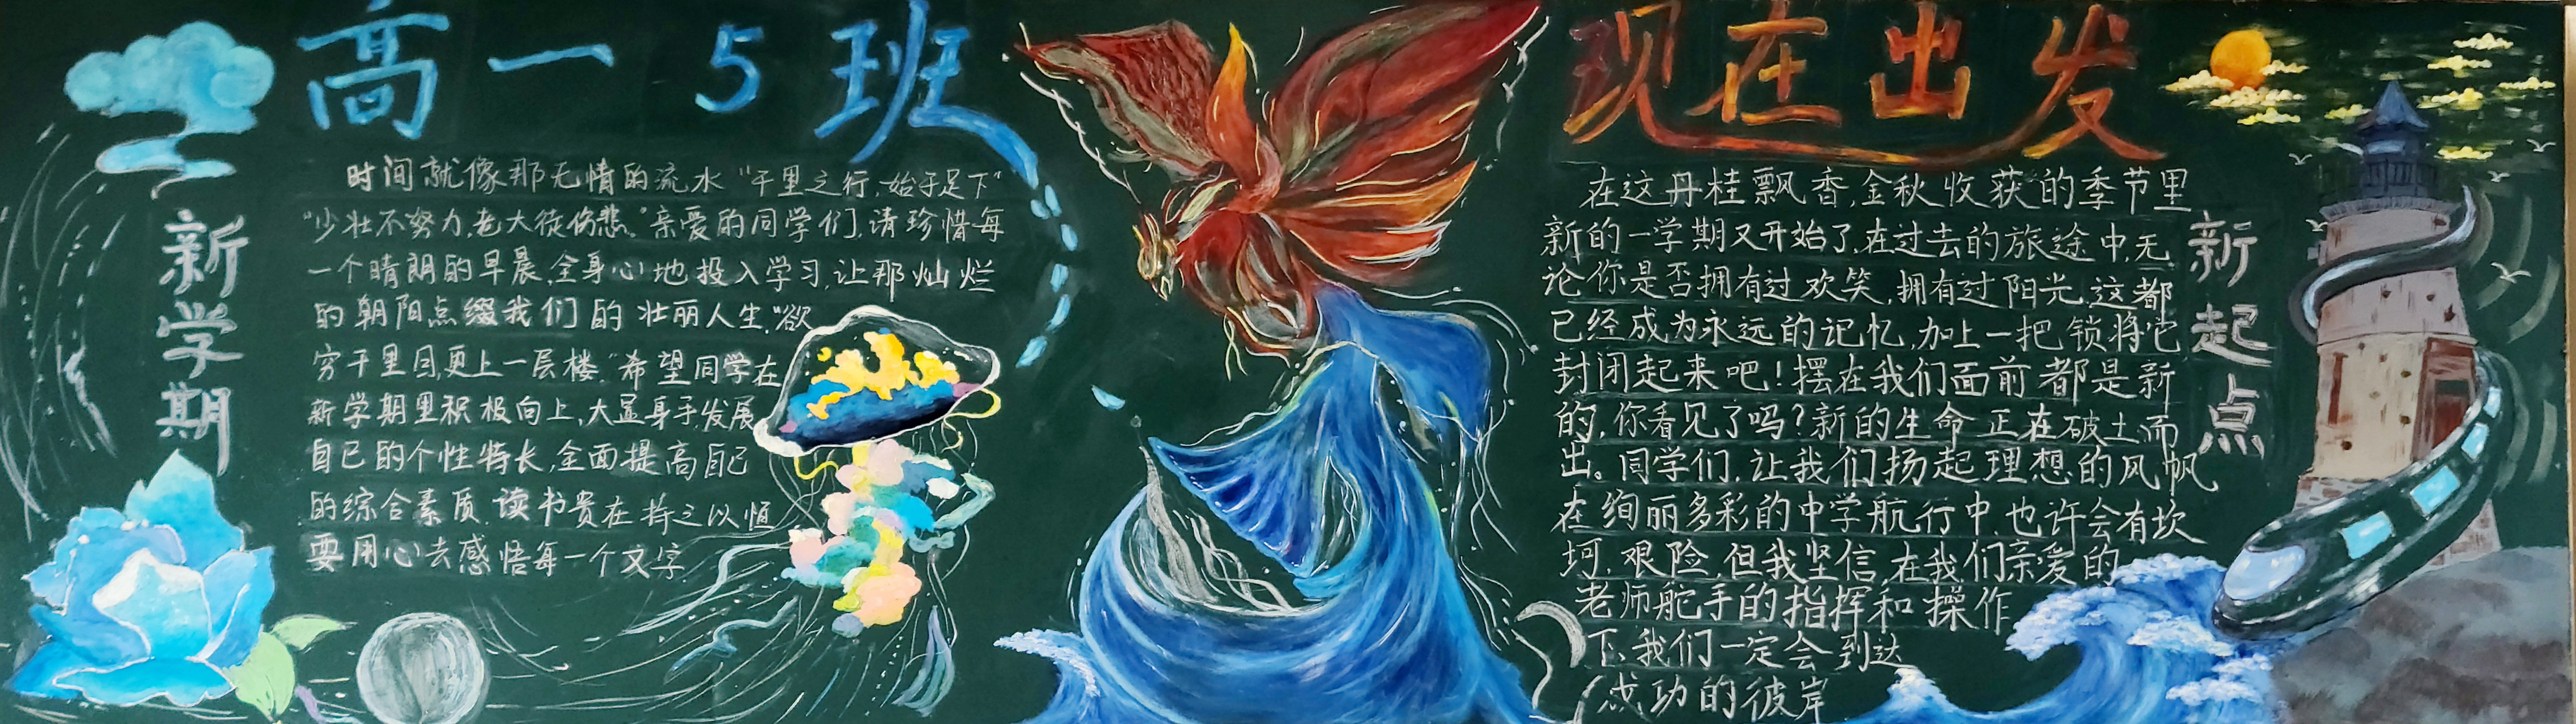 高一5班
现在出发
新学期
时间就像那无情的流水“千里之行，始于足下”
“少壮不努力，老大徒伤悲。”亲爱的同学们，请珍惜每
一个晴朗的早晨，全身心地投入学习，让那灿烂
的朝阳点缀我们的壮丽人生，“欲
穷千里目，更上一层楼。”希望同学在
新学期里积极向上，大显身手，发展
自己的个性特长，全面提高自己
的综合素质，读书贵在持之以恒
要用心去感悟每一个文字
在这丹桂飘香，金秋收获的季节里
新的一学期又开始了，在过去的旅途中，无
论你是否拥有过欢笑，拥有过阳光，这都
已经成为永远的记忆，加上一把锁将它
封闭起来吧！摆在我们面前都是新
的，你看见了吗？新的生命正在破土而
出。同学们，让我们扬起理想的风帆
在绚丽多彩的中学航行中，也许会有坎
坷，艰险，但我坚信，在我们亲爱的
老师舵手的指挥和操作
下，我们一定会到达
成功的彼岸
新起点